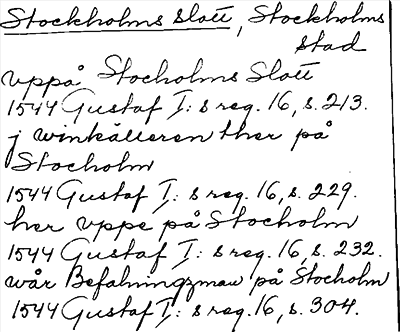 Stockholms slott, Stockholms
stad
vppå Stocholms Slott
1544 Gustaf I:s reg. 16, s. 213.
j winkälleren ther på
Stocholm
1544 Gustaf I:s reg. 16, s. 229.
her vppe på Stocholm
1544 Gustaf I:s reg. 16, s. 232.
wår Befalningzman på Stocholm
1544 Gustaf I:s reg. 16, s. 304.